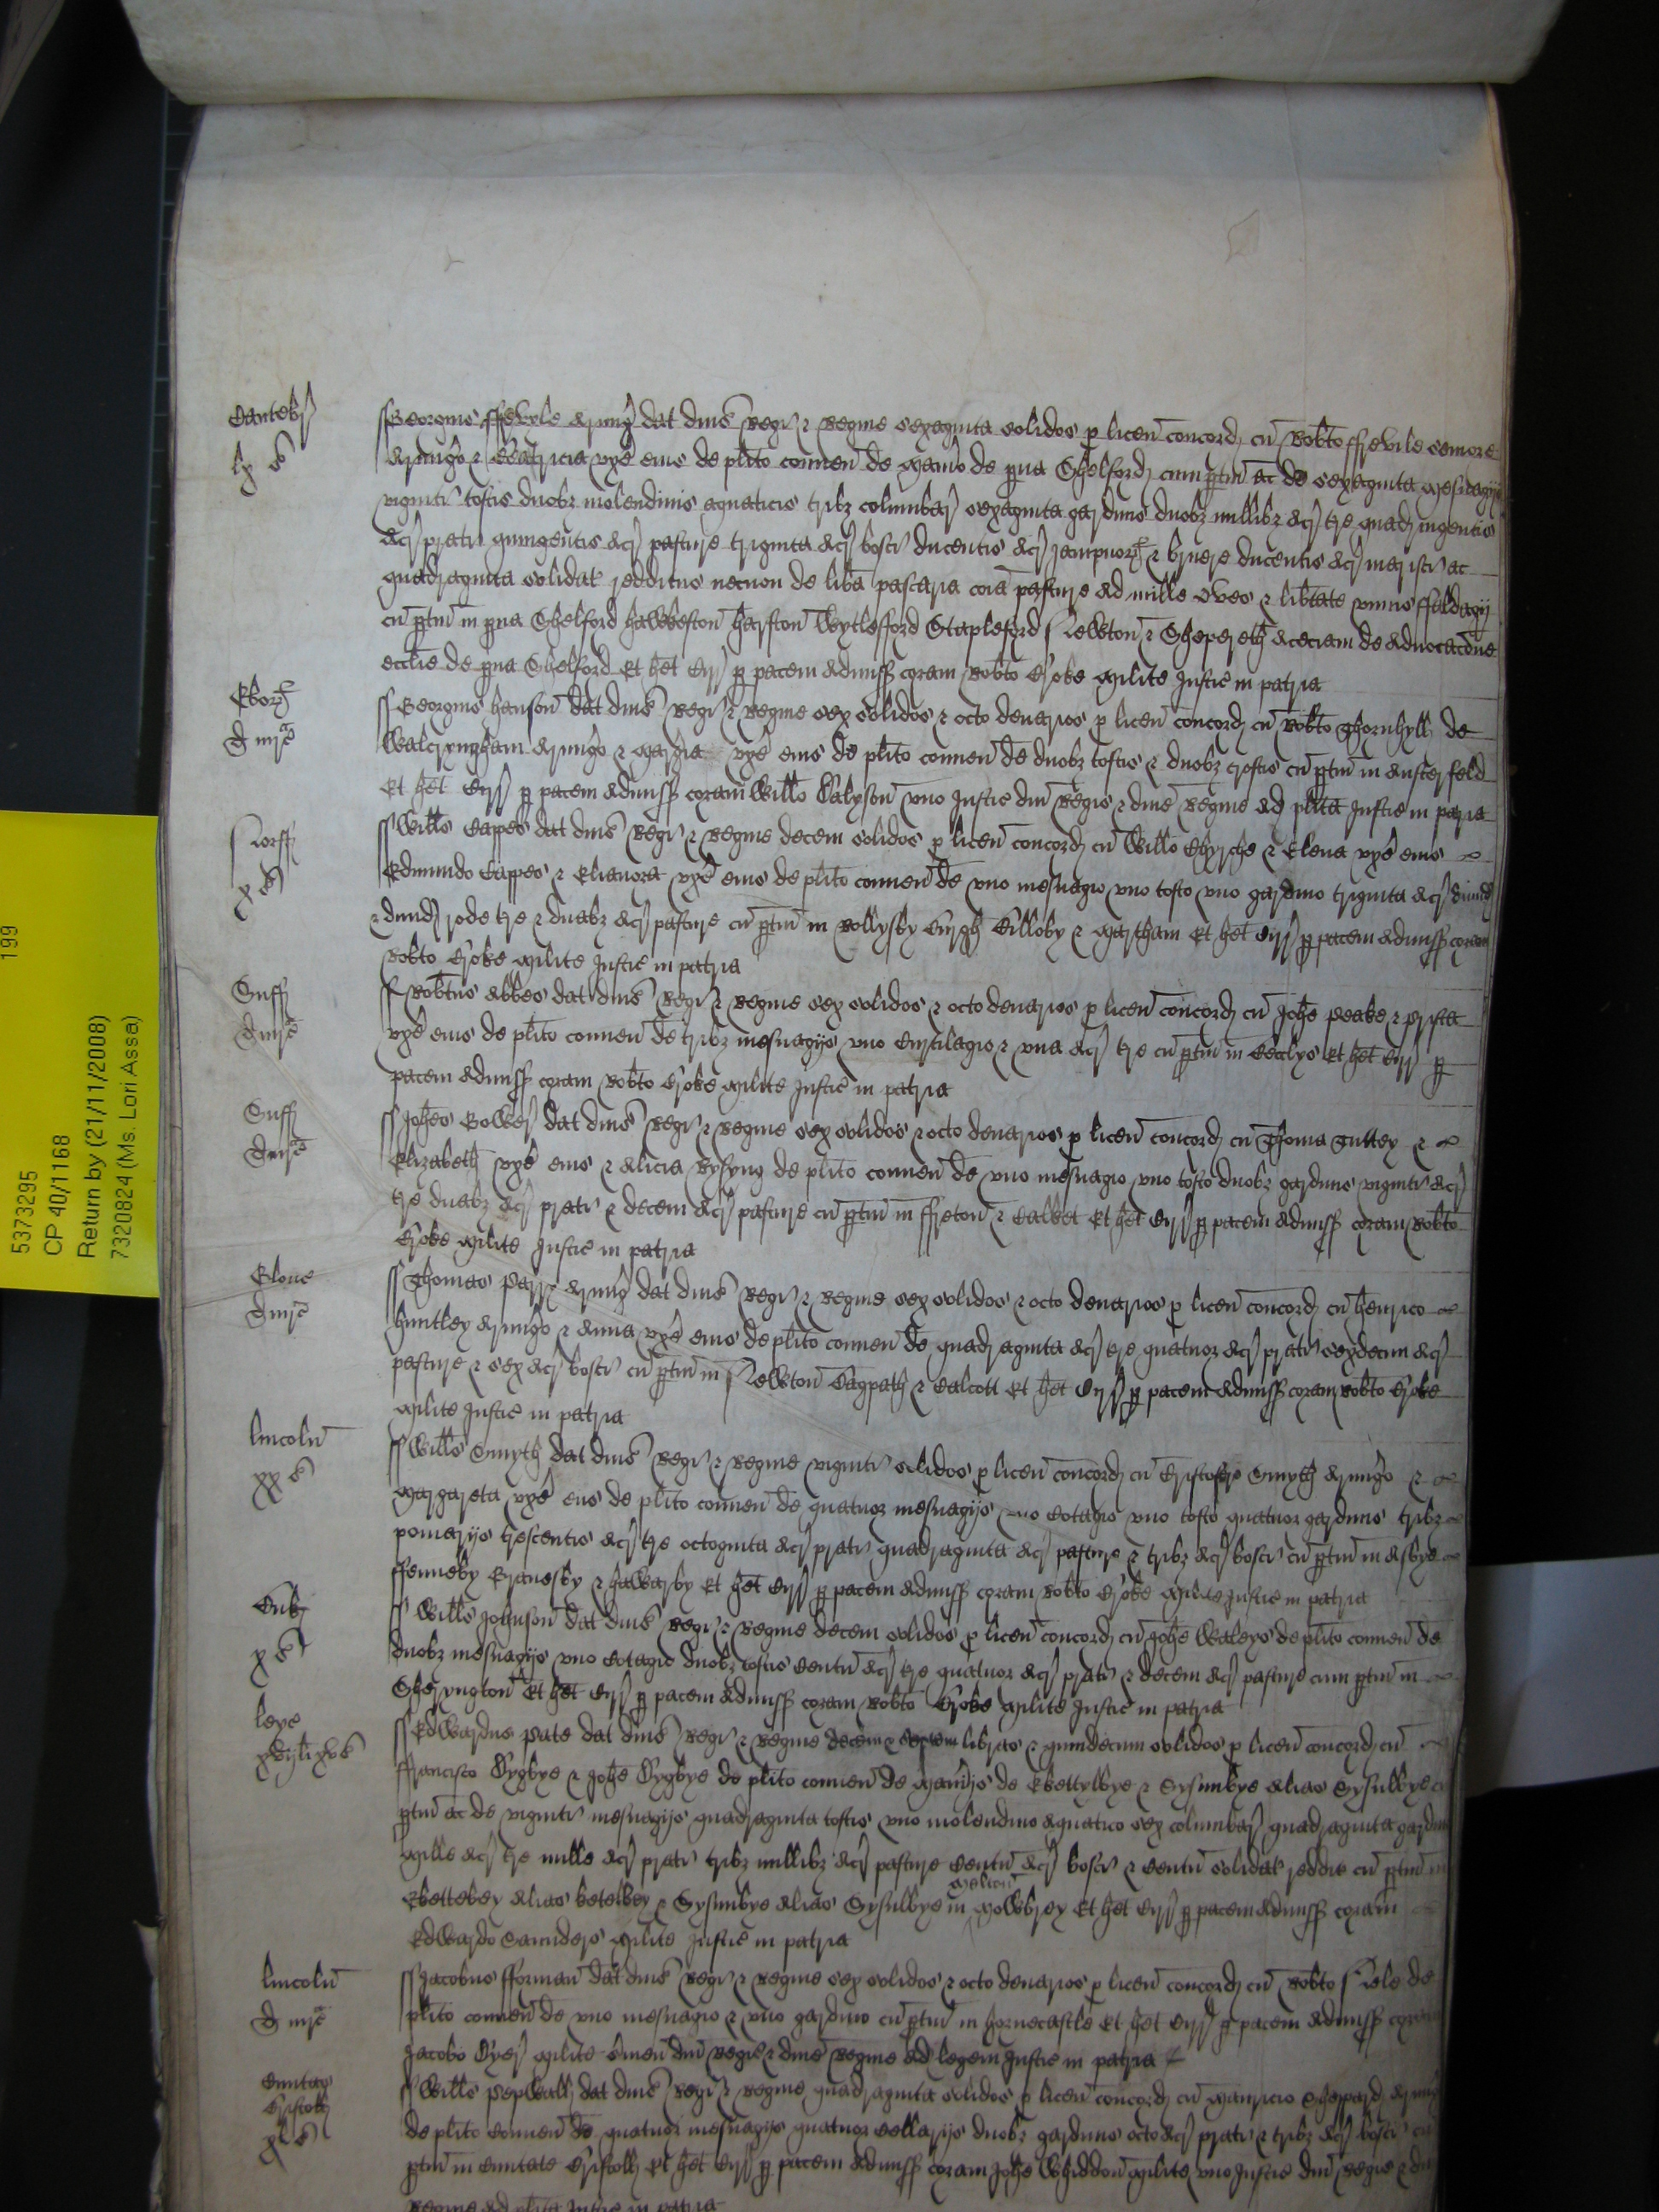 199
5373295
CP 40/1168
Return by (21/11/2008)
7320824 (Ms. Lori Assa)
Cantebr
lx s
Georgius ffrevyle Armig dat dnis Regi & Regine sexaginta solidos p licen concord cu Robto ffrevile seniore
Armigo & Beatricia uxe eius de plito conven de Manio de pva Shelford cum ptin ac de sexaginta Mesuagijs
viginti toftis duobz molendinis aquaticis tribz columbar sexaginta gardinis duobz millibz acr tre quadringentis
acr prati quingentis acr pasture triginta acr bosci ducentis acr jampnor & bruere ducentis acr marisci ac
quadraginta solidat redditus necnon de liba pascaria coia pasture ad mille Oves & libtate unius ffaldagij
cu ptin in pva Shelford hawkeston harston Wytlesford Stapleford Newton & Shepereth aceciam de advocacone
ecclie de pva Shelford Et het Cirr p pacem admiss coram Robto Broke Milite Justic in patria
Ebor
D mrc
Georgius hanson dat dnis Regi & Regine sex solidos & octo denarios p licen concord cu Robto Thornhyll de
Walcryngham Armigo & uxe eius de plito conven de duobz toftis & duobz croftis cu ptin in Austerfeld
Et het Cirr p pacem admiss coram Willo Dalyson uno Justic dni Regis & dne Regine ad plita Justic in patria
Norff
x s
Wills Cappes dat dnis Regi & Regine decem solidos p licen concord cu Willo Chyrche & Elena uxe eius
Edmundo Cappes & Elianora uxe eius de plito conven de uno mesuagio uno tofto uno gardino triginta acr dimid
& dimid rode tre & duabz acr pasture cu ptin in Rollysby Burgh Billoby & Martham Et het Cirr p pacem admiss coram
Robto Broke Milite Justic in patria
Suff
D mrc
Robtus Abbes dat dnis Regi & Regine sex solidos & octo denarios p licen concord cu Johe Peake &
uxe eius de plito conven de tribz mesuagijs uno Curtilagio & una acr tre cu ptin in Becclys Et het Cirr p
pacem admiss coram Robto Broke Milite Justic in patria
Suff
D mrc
Johes dat dnis Regi & Regine sex solidos & octo denarios p licen concord cu Thoma &
Elizabeth uxe eius & Alicia de plito conven de uno mesuagio uno tofto duobz gardinis viginti acr
tre duabz acr prati & decem acr pasture cu ptin in ffreton & Et het Cirr p pacem admiss coram Robto
Broke Milite Justic in patria
Glouc
D mrc
Thomas Parr Armig dat dnis Regi & Regine sex solidos & octo denarios p licen concord cu henrico
huntley Armigo & Anna uxe eius de plito conven de quadraginta acr tre quatuor acr prati sexdecim acr
pasture & sex acr bosci cu ptin in Newton Bagpath & Calcott Et het Cirr p pacem admiss coram Robto Broke
Milite Justic in patria
lincoln
xx s
Wills Smyth dat dnis Regi & Regine viginti solidos p licen concord cu Cristofro Smyth Armigo &
Margareta uxe eius de plito conven de quatuor mesuagijs uno Cotagio uno tofto quatuor gardinis tribz
pomarijs trescentis acr tre octoginta acr prati quadraginta acr pasture & tribz acr bosci cu ptin in Asbye
ffenneby & hawarby Et het Cirr p pacem admiss coram Robto Broke Milite Justic in patria
Buk
x s
Wills Johnson dat dnis Regi & Regine decem solidos p licen concord cu Johe Waleys de plito conven de
duobz mesuagijs uno Cotagio duobz toftis Centu acr tre quatuor acr prati & decem acr pasture cum ptin in
Sheryngton Et het Cirr p pacem admiss coram Robto Broke Milite Justic in patria
leyc
xvijli xvs
Edwardus Pate dat dnis Regi & Regine decem & septem libras & quindecim solidos p licen concord cu
ffrancisco Dygbye & Johe Dygbye de plito conven de Manijs de Kettylbye & Sysunbye alias Sysulbye cu
ptin ac de viginti mesuagijs quadraginta toftis uno molendino aquatico sex columbar quadraginta gardin
Mille acr tre mille acr prati tribz millibz acr pasture Centu acr bosci & Centu solidat reddit cu ptin in
Kettebey alias ketelbey & Sysunbye alias Sysulbye in Melton Mowbrey Et het Cirr p pacem admiss coram
Edwardo Saunders Milite Justic in patria
lincoln
D mrc
Jacobus fforman dat dnis Regi & Regine sex solidos & octo denarios p licen concord cu Robto Nele de
plito conven de uno mesuagio & uno gardino cu ptin in hornecastle Et het Cirr p pacem admiss coram
Jacobo Dyer Milite dni Regis & dne Regine ad legem Justic in patria
Civitas
Bristoll
xl s
Wills Pepwall dat dnis Regi & Regine quadraginta solidos p licen concord cu Mauricio Shepard Armig
de plito conven de quatuor mesuagijs quatuor Cellarijs duobz gardinis octo acr prati & tribz acr bosci cu
ptin in Civitate Bristoll Et het Cirr p pacem admiss coram Johe Whiddon Milite uno Justic dni Regis & dne
Regine ad plita Justic in patria